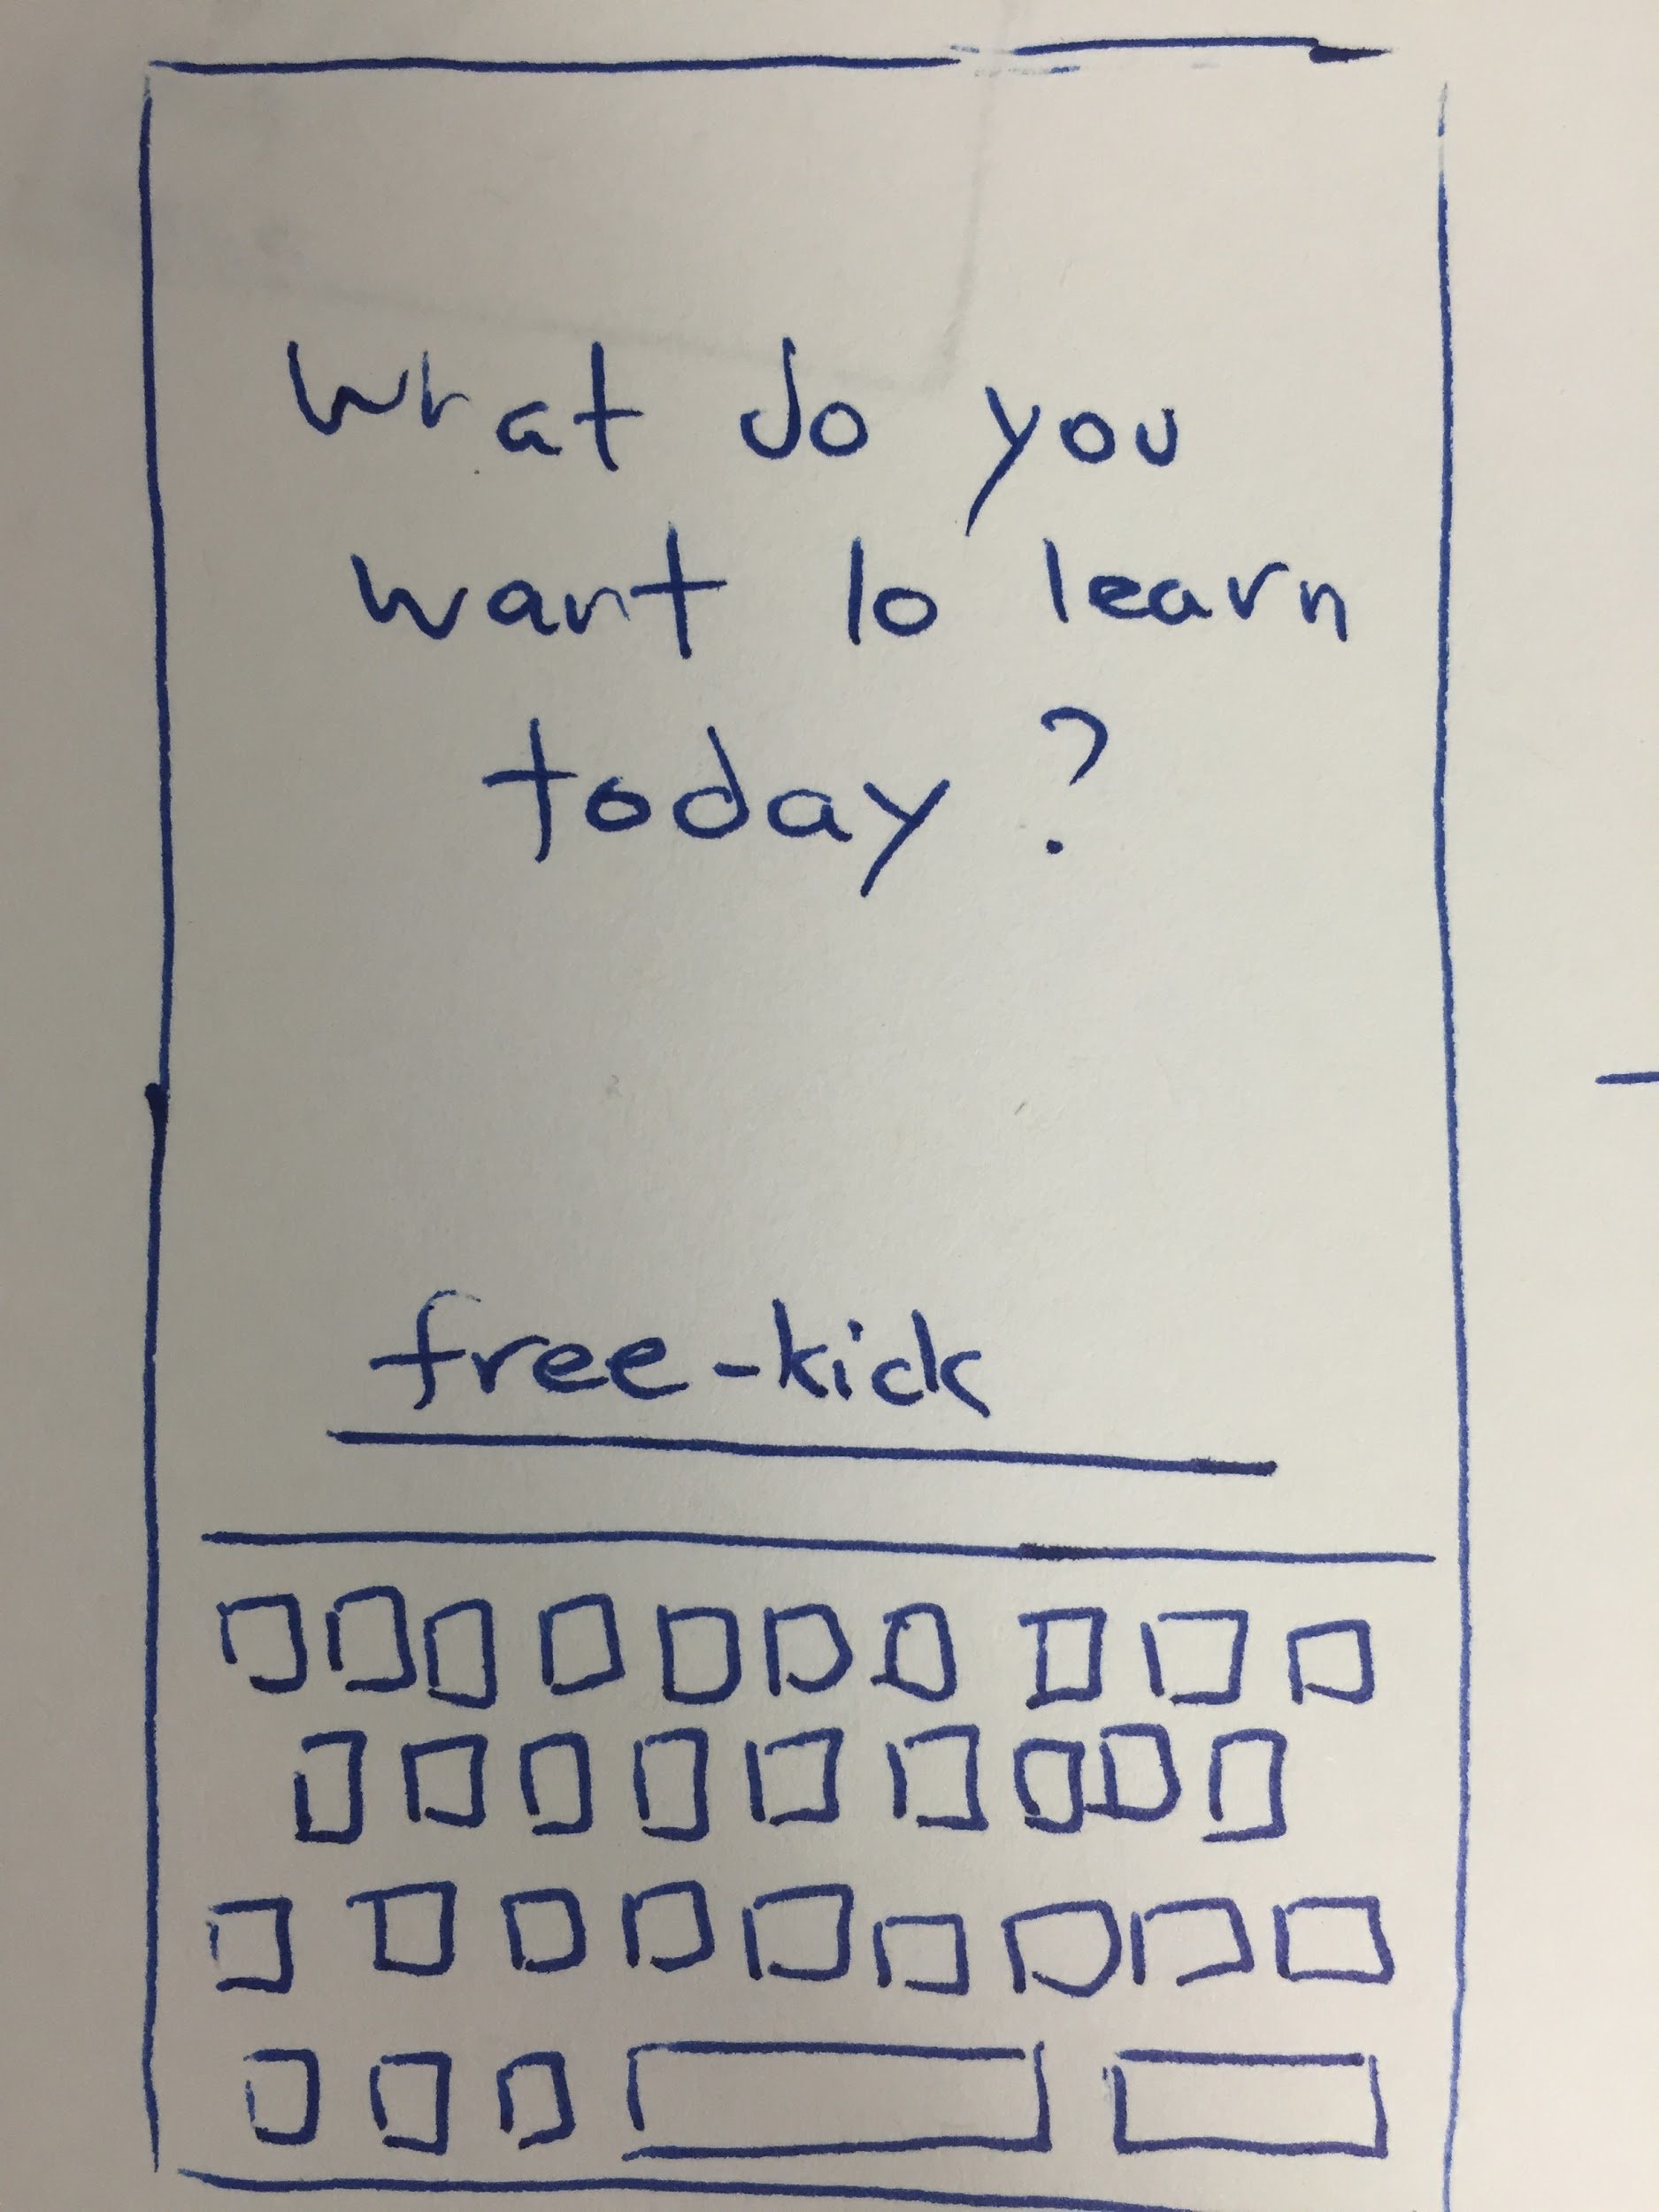 What do you
want to learn
today?
free-kick